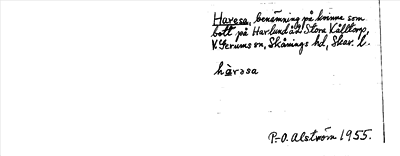 Havasa, benämning på kvinna som
bott på Havlundåͦ Stora Källtorp,
V. Gerums sn, Skånings hd, Skar. l.
hàvasa
P.-O. Alström 1955.